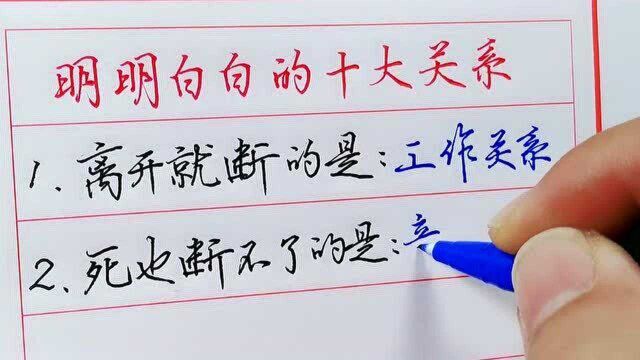 明明白白的十大关系
1. 离开就断的是:工作关系
2. 死也断不了的是: